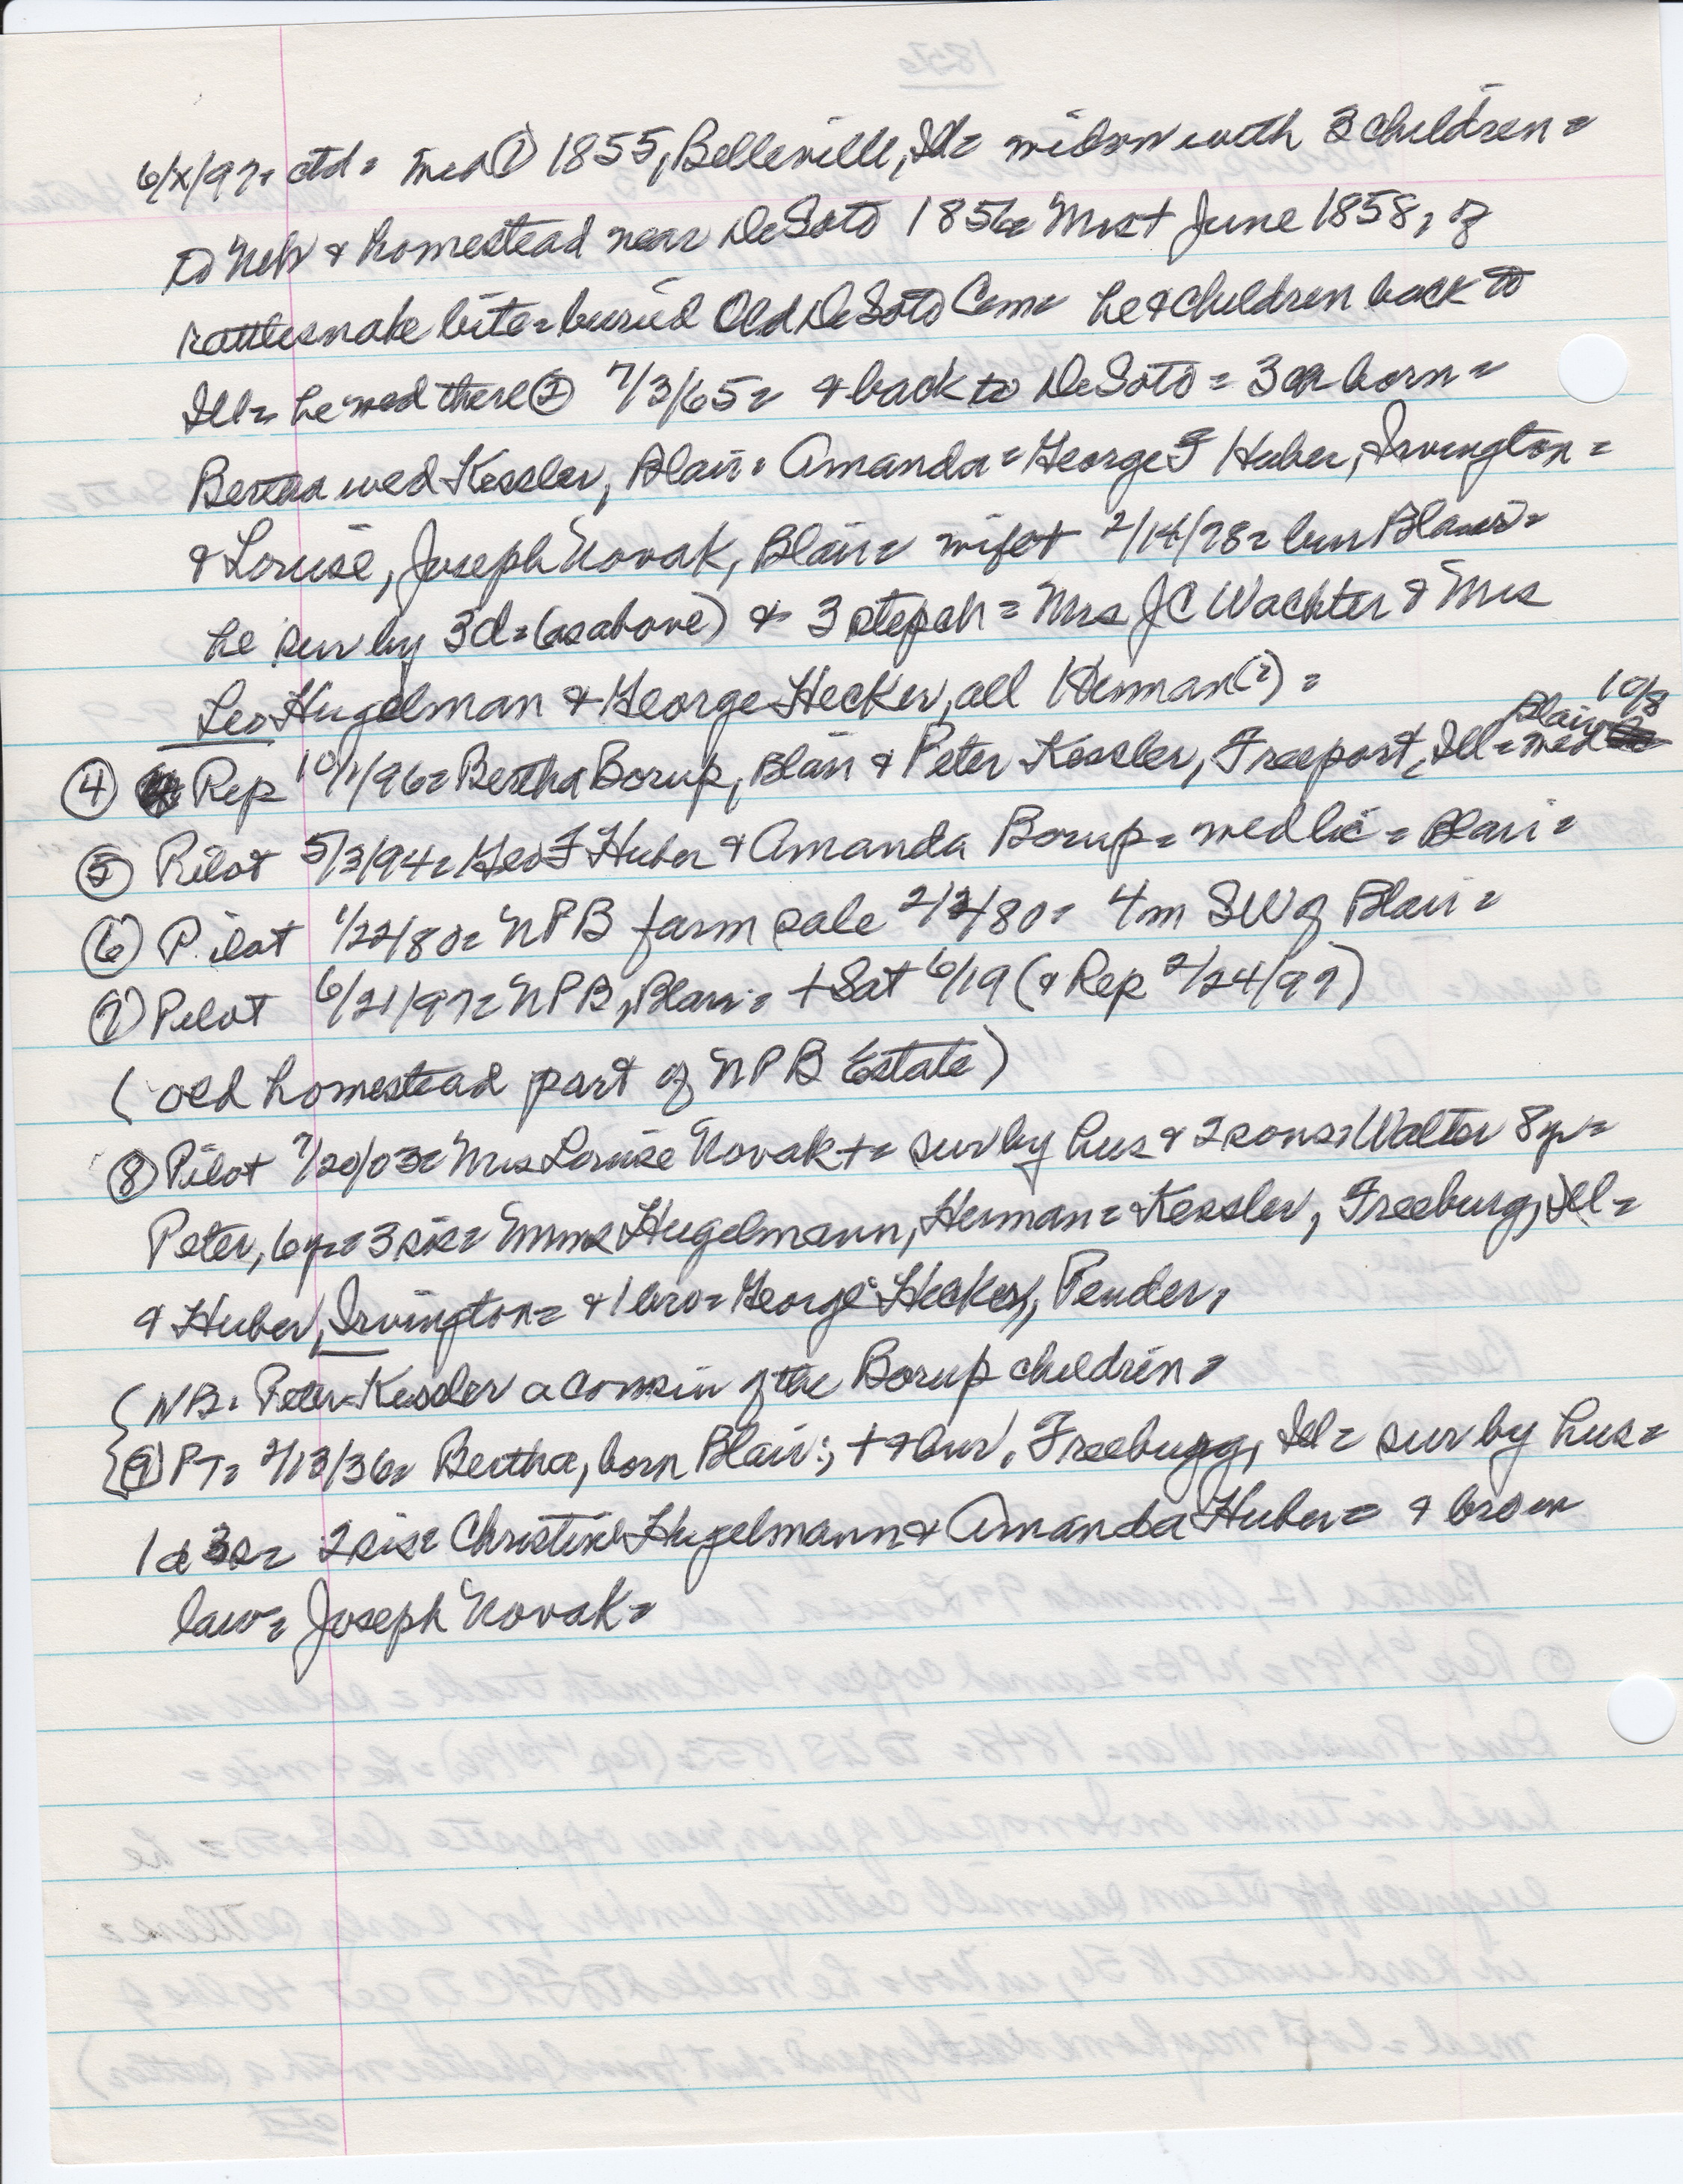 6/x/97= ctd= wed ① 1855, Belleville, Ill= widow with 3 children=
to Neb & homestead near DeSoto 1856= Mrs + June 1858, of
rattlesnake bite= buried Old DeSoto Cem= he & children back to
Ill= he wed there ② 7/3/65= & back to DeSoto= 3 ch born=
Bertha wed Kessler, Blair= Amanda= George F Huber, Irvington=
& Louise, Joseph Novak, Blair= wife + 2/14/78= bur Blair=
he sur by 3d= (as above) & 3 stepch= Mrs JC Wachter & Mrs
Leo Hugelman & George Hecker, all Herman(?)=
10/8
Blair
④ Rep 10/1/96= Bertha Borup, Blair & Peter Kessler, Freeport, Ill= wed
⑤ Pilot 5/3/94= Geo F Huber & Amanda Borup= wed lic= Blair=
⑥ Pilot 1/22/80= NPB farm sale 2/2/80= 4m SW of Blair=
⑦ Pilot 6/21/97= NPB, Blair= + Sat 6/19 (& Rep 2/24/97)
(old homestead part of NPB Estate)
⑧ Pilot 7/20/03= Mrs Louise Novak += sur by hus & 2 sons, Walter 8y=
Peter, 6y= 3 sis= Mmes Hugelmann, Herman= Kessler, Freeburg, Ill=
& Huber, Irvington= & 1 bro= George Hecker, Pender,
(NB. Peter Kessler a cousin of the Borup children=
⑨ PT= 2/13/36= Bertha, born Blair; + & bur, Freeburg, Ill= sur by hus=
1d 3s= 2 sis= Christine Hugelmann & Amanda Huber= & bro in
law= Joseph Novak=